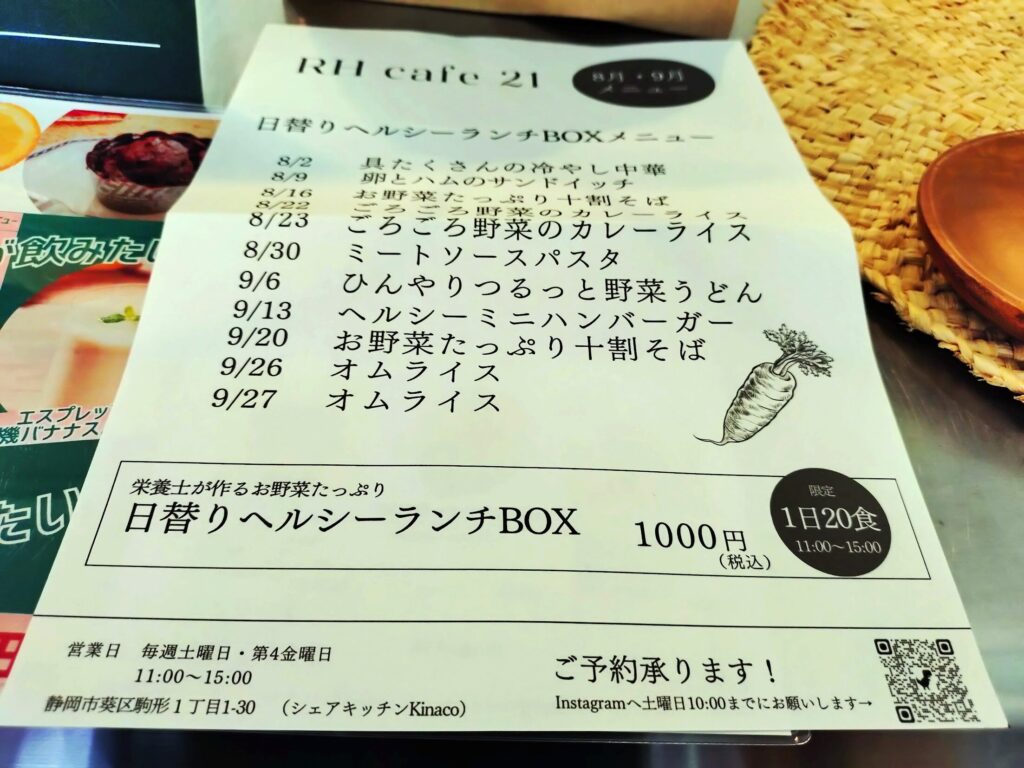 RH cafe 21
8月・9月
メニュー
日替りヘルシーランチBOXメニュー
8/2 具たくさんの冷やし中華
8/9 卵とハムのサンドイッチ
8/16 お野菜たっぷり十割そば
8/22 ごろごろ野菜のカレーライス
8/23 ごろごろ野菜のカレーライス
8/30 ミートソースパスタ
9/6 ひんやりつるっと野菜うどん
9/13 ヘルシーミニハンバーガー
9/20 お野菜たっぷり十割そば
9/26 オムライス
9/27 オムライス
栄養士が作るお野菜たっぷり
日替りヘルシーランチBOX 1000円
(税込)
限定
1日20食
11:00～15:00
営業日 毎週土曜日・第4金曜日
11:00～15:00
静岡市葵区駒形1丁目1-30 (シェアキッチンKinaco)
ご予約承ります！
Instagramへ土曜日10:00までにお願いします→
が飲みたい
エスプレッ
機バナナス
たい